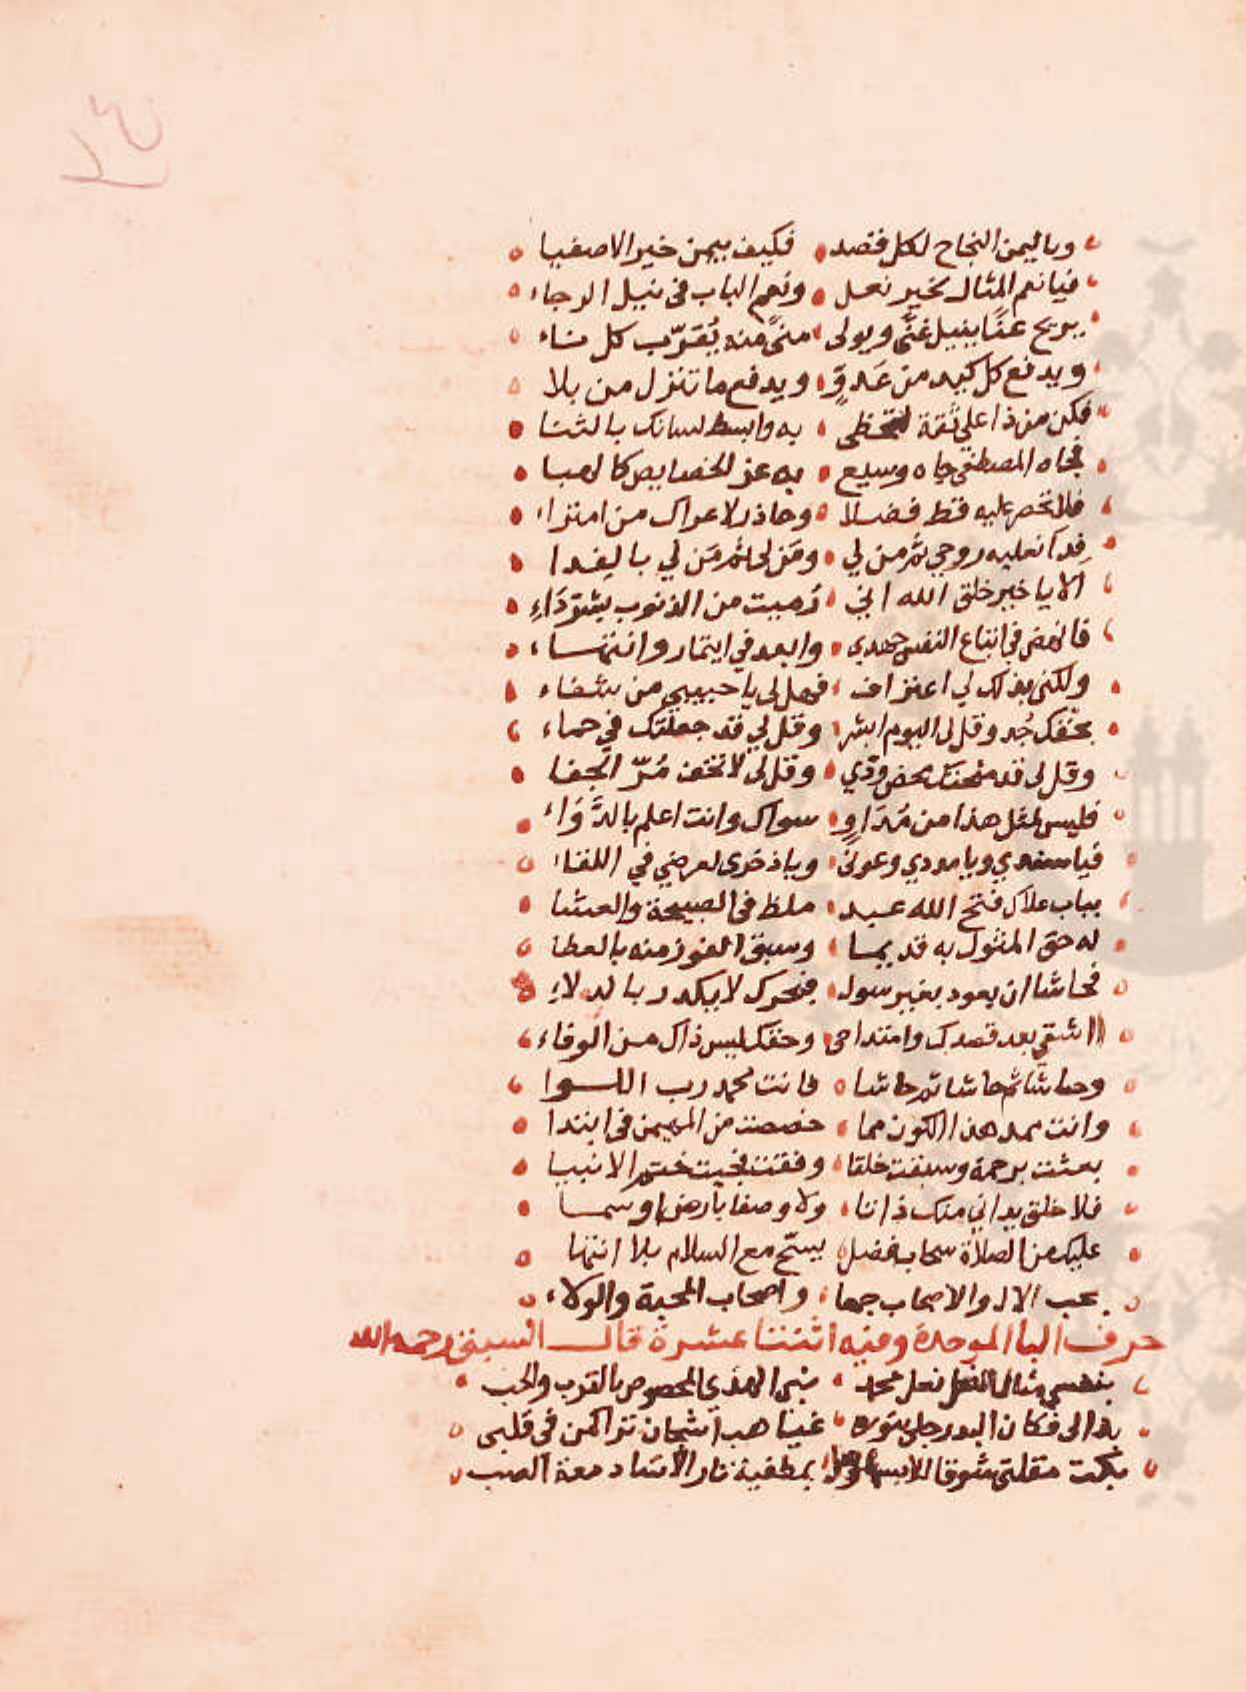 ٢٤
وباليمن النجاح لكل قصد فكيف بيمن خير الاصفيا
فيا نعم المثال بخير نعل ونعم الباب في نيل الرجاء
يريح عنًا ينيل غنًى ويولى منىً منه يُقَرّب كل شاء
ويدفع كل كيد من عَدوٍّ ويدفع ما تنزل من بلا
فكن من ذا على ثقة لتحظى به وابسط لسانك بالثنا
فجاه المصطفى جاه وسيع به عز الخصايص كالهبا
فلا تحصر عليه قط فضلا وحاذر لاعراك من امتراء
فِدا نعليه روحي ثم من لي ومَن لي ثم مَن لي بالفدا
الا يا خير خلق الله اني رُميت من الذنوب بشرّ دَاءِ
فانهض في اتباع النفس جهدي وابعد في ايتمار وانتهاء
ولكني بذلك لي اعتراف فهل لي يا حبيبي من شفاء
بحقك جُد وقل لي اليوم ابشر وقل لي قد جعلتك في حماء
وقل لي قد منحتك محض ودّي وقل لي لا تخف مُرّ الجفا
فليس لمثل هذا من مُدَاوٍ سواك وانت اعلم بالدَّوَاء
فيا سندي ويا مددي وعوني ويا ذخري لعرضي في اللقاء
بباب علاك فتح الله عبد ملظ في الصبيحة والعشا
له حق المثول به قديما وسبق الفوز منه بالعطا
فحاشا ان يعود بغير سول فبحرك لا يكدر بالدلاءِ
ااشقي بعد قصدك وامتداحي وحقك ليس ذاك من الوفاء
وحاشا ثم حاشا ثم حاشا فانت محمد رب اللوا
وانت ممد هذا الكون مما خصصت من المهيمن في ابتدا
بعثت برحمة وسبقت خلقا وفقت فجيت ختم الانبيا
فلا خلق يداني منك ذاتا ولا وصفا بارض او سما
عليك من الصلاة سحاب فضل يسحّ مع السلام بلا انتها
بحب الال والاصحاب جمعا واصحاب المحبة والولاء
حرف البا الموحدة وفيه اثنتا عشرة قال السبتي رحمه الله
بنفسي مثال النعل نعل محمد نبي الهدي المخصوص بالقرب والحب
بدا لي فكان البدر جلى بنوره غياهب اشجان تراكمن في قلبي
بكت مقلتي شوقا بمطفية نار الاسا دمعة الصب